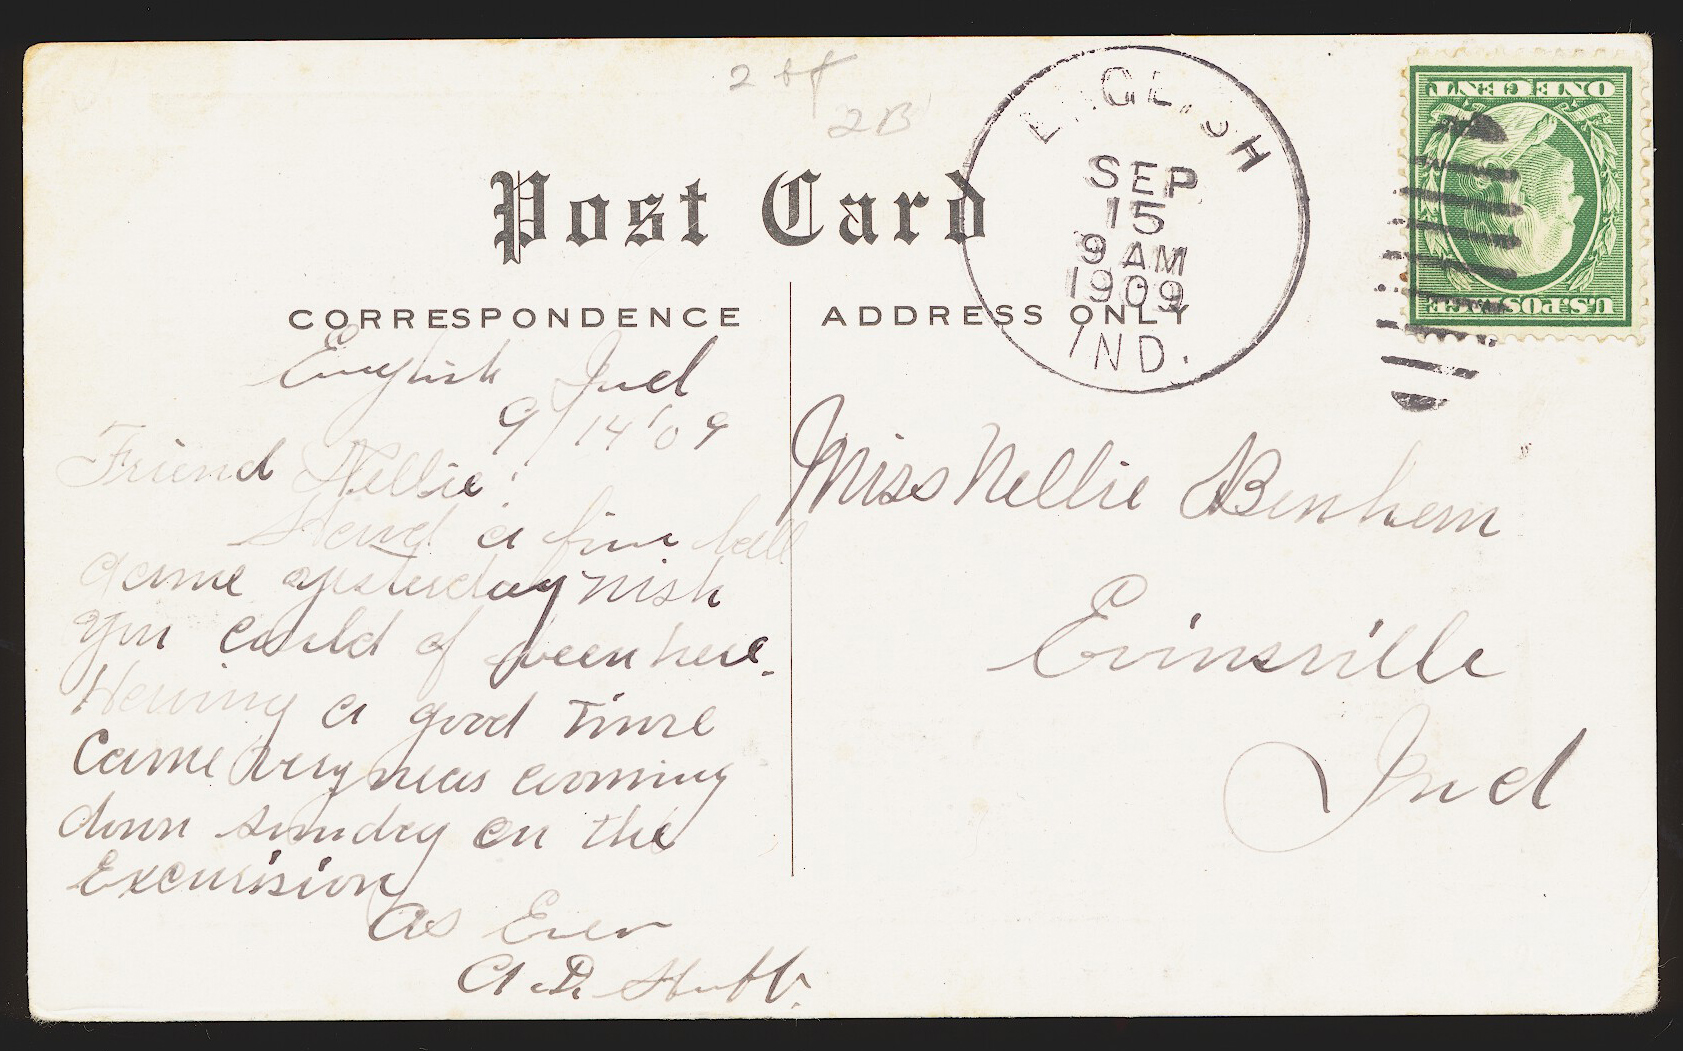 2 
2B
Post Card
CORRESPONDENCE
ADDRESS ONLY
ENGLISH
SEP
15
9 AM
1909
IND.
ONE CENT
U.S. POSTAGE
English Ind
9/14'09
Friend Nellie:
Haved a fine ball
game yesterday wish
you could of been here.
Having a good Time
Came very near comming
down sunday on the
Excursision
As Ever
A.D. Huff.
Miss Nellie Benhem
Evinsville
Ind